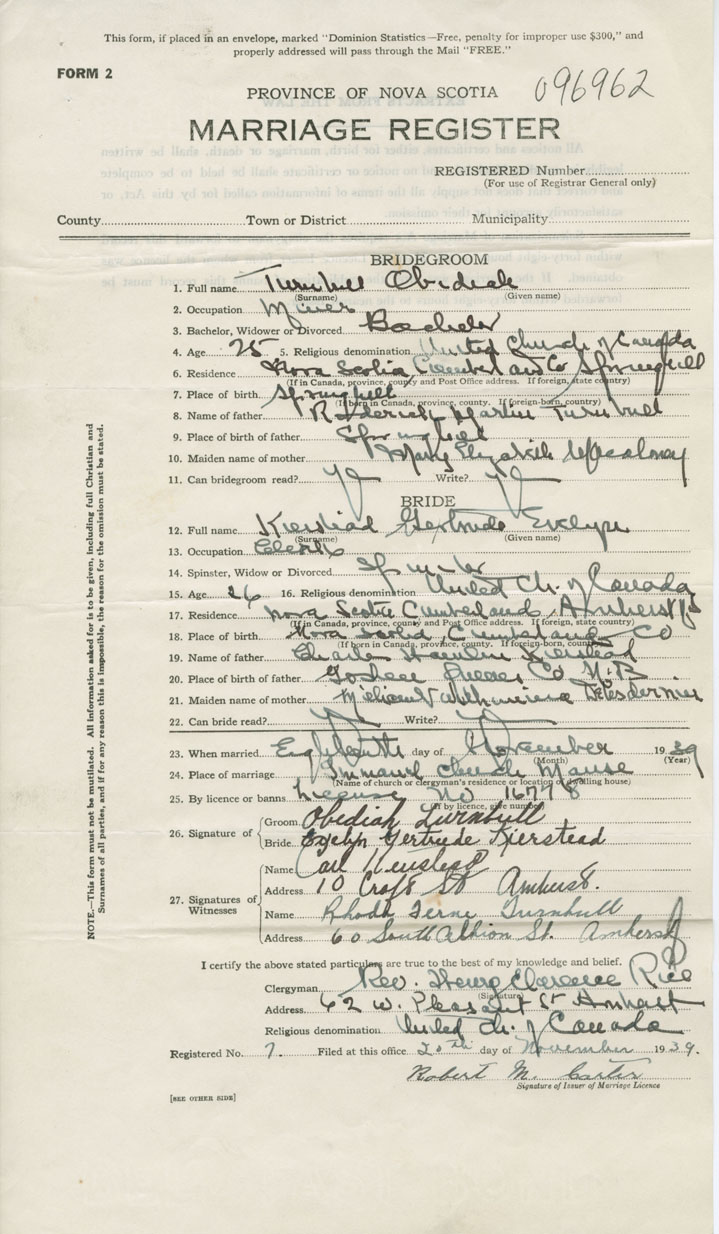 This form, if placed in an envelope, marked "Dominion Statistics—Free, penalty for improper use $300," and
properly addressed will pass through the Mail "FREE."
FORM 2
PROVINCE OF NOVA SCOTIA 096962
MARRIAGE REGISTER
REGISTERED Number
(For use of Registrar General only)
County Town or District Municipality
BRIDEGROOM
1. Full name Turnbull Obidiah
(Surname) (Given name)
2. Occupation Miner
3. Bachelor, Widower or Divorced Bachelor
4. Age 25 5. Religious denomination United Church of Canada
6. Residence Nova Scotia Cumberland Co Springhill
(If in Canada, province, county and Post Office address. If foreign, state country)
7. Place of birth Springhill
(If born in Canada, province, county. If foreign-born, country)
8. Name of father Roderick Martin Turnbull
9. Place of birth of father Springhill
10. Maiden name of mother Mary Elizabeth
11. Can bridegroom read? Yes Write? Yes
BRIDE
12. Full name Kierstead Gertrude Evelyn
(Surname) (Given name)
13. Occupation Clerk
14. Spinster, Widow or Divorced Spinster
15. Age 26 16. Religious denomination United Ch. of Canada
17. Residence Nova Scotia Cumberland, Amherst
(If in Canada, province, county and Post Office address. If foreign, state country)
18. Place of birth Nova Scotia, Cumberland Co
(If born in Canada, province, county. If foreign-born, country)
19. Name of father Charles Kierstead
20. Place of birth of father Co N.B.
21. Maiden name of mother
22. Can bride read? Yes Write? Yes
23. When married Eighteenth day of November 1939
(Month) (Year)
24. Place of marriage Immanuel Church Manse
(Name of church or clergyman's residence or location of dwelling house)
25. By licence or banns License No 16778
(If by licence, give number)
26. Signature of
Groom Obediah Turnbull
Bride Evelyn Gertrude Kierstead
27. Signatures of Witnesses
Name Carl Kierstead
Address 10 Croft St Amherst.
Name Rhoda Ferne Turnbull
Address 60 South Albion St. Amherst
I certify the above stated particulars are true to the best of my knowledge and belief.
Clergyman Rev. Henry Clarence Rice
(Signature)
Address 62 W. Pleasant St Amherst
Religious denomination United Ch. of Canada
Registered No. 7. Filed at this office 20th day of November 1939.
Robert M. Carter
Signature of Issuer of Marriage Licence
[SEE OTHER SIDE]
NOTE.—This form must not be mutilated. All information asked for is to be given, including full Christian and
Surnames of all parties, and if for any reason this is impossible, the reason for the omission must be stated.